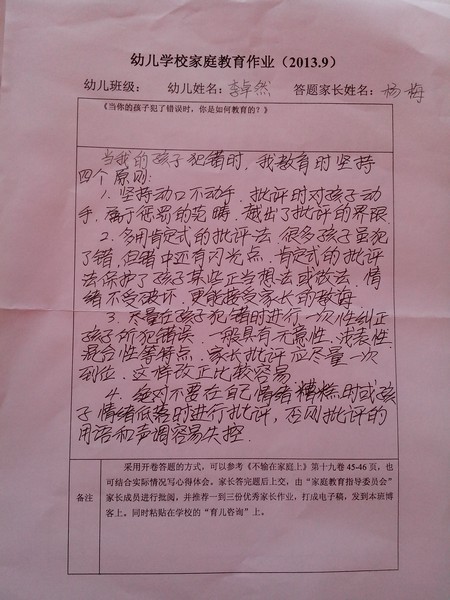 幼儿学校家庭教育作业（2013.9）
幼儿班级： 幼儿姓名：李卓然 答题家长姓名：杨梅
《当你的孩子犯了错误时，你是如何教育的？》
当我的孩子犯错时，我教育时坚持
四个原则：
1. 坚持动口不动手，批评时对孩子动
手，属于惩罚的范畴，越出了批评的界限
2. 多用肯定式的批评法，很多孩子虽犯
了错，但错中还有闪光点，肯定式的批评
法保护了孩子某些正当想法或做法，情
绪不受破坏，更能接受家长的教诲
3. 尽量在孩子犯错时进行一次性纠正
孩子所犯错误，一般具有无意性，浅表性，
混合性等特点，家长批评应尽量一次
到位，这样改正比较容易
4. 绝对不要在自己情绪糟糕时或孩
子情绪低落时进行批评，否则批评的
用语和声调容易失控.
备注
采用开卷答题的方式，可以参考《不输在家庭上》第十九卷 45-46 页，也
可结合实际情况写心得体会。家长答完题后上交，由“家庭教育指导委员会”
家长成员进行批阅，并推荐一到三份优秀家长作业，打成电子稿，发到本班博
客上。同时粘贴在学校的“育儿咨询”上。